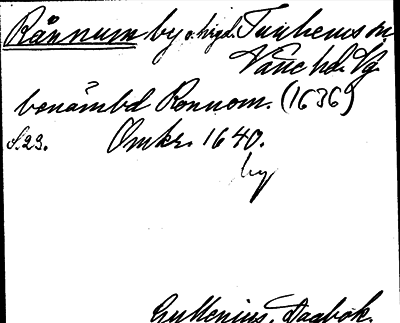 Rännum by o. hrgd. Tunhems sn.
Väne hd. Vg.
benämbd Ronnom. (1636)
S. 23. Omkr. 1640.
by
Gyllenius, Dagbok.